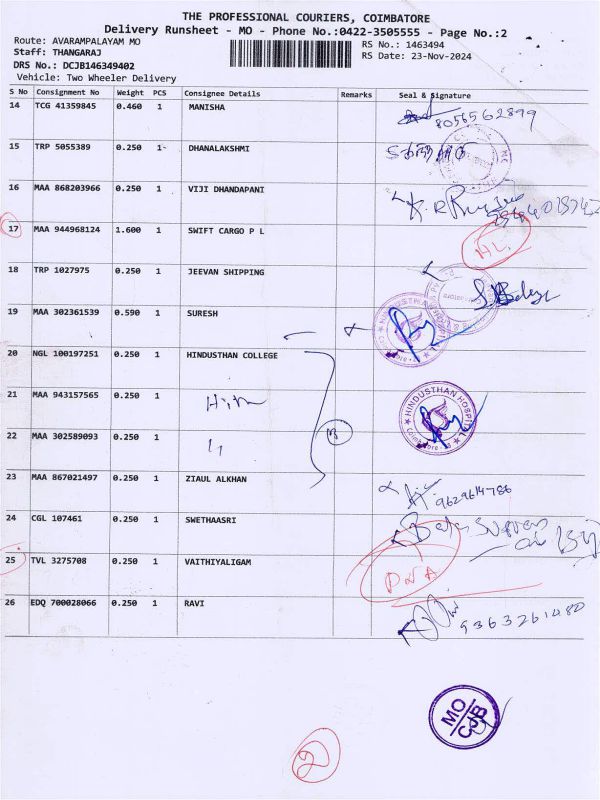 THE PROFESSIONAL COURIERS, COIMBATORE
Delivery Runsheet - MO - Phone No.:0422-3505555 - Page No.:2
Route: AVARAMPALAYAM MO
RS No.: 1463494
Staff: THANGARAJ
RS Date: 23-Nov-2024
DRS No.: DCJB146349402
Vehicle: Two Wheeler Delivery
S No Consignment No Weight PCS Consignee Details Remarks Seal & Signature
14 TCG 41359845 0.460 1 MANISHA
8056562899
15 TRP 5055389 0.250 1 DHANALAKSHMI
16 MAA 868203966 0.250 1 VIJI DHANDAPANI
17 MAA 944968124 1.600 1 SWIFT CARGO P L
18 TRP 1027975 0.250 1 JEEVAN SHIPPING
19 MAA 302361539 0.590 1 SURESH
20 NGL 100197251 0.250 1 HINDUSTHAN COLLEGE
21 MAA 943157565 0.250 1
HINDUSTHAN HOSPITAL
Coimbatore
22 MAA 302589093 0.250 1
23 MAA 867021497 0.250 1 ZIAUL ALKHAN
9629614786
24 CGL 107461 0.250 1 SWETHAASRI
25 TVL 3275708 0.250 1 VAITHIYALIGAM
26 EDQ 700028066 0.250 1 RAVI
9363261480
MO
CJB
2